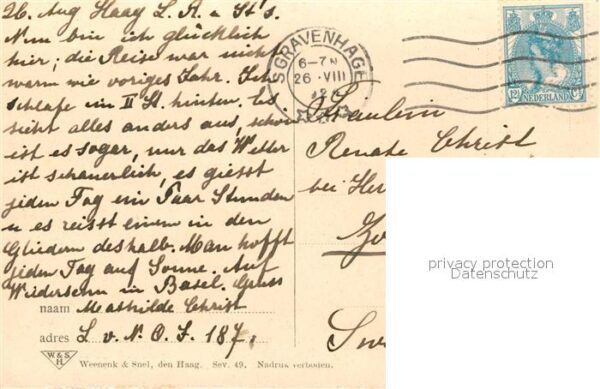 26. Aug Haag L. R. u St's.
Nun bin ich glücklich
hier; die Reise war nicht
warm wie voriges Jahr. Ich
schlafe im II St. hinten. Es
sieht alles anders aus, schön
ist es sogar, nur das Wetter
ist schauerlich, es giesst
jeden Tag ein Paar Stunden
u es reisst einem in den
Gliedern deshalb. Man hofft
jeden Tag auf Sonne. Auf
Wiedersehn in Basel. Gruss
naam Mathilde Christ
adres L. v. N. O. J. 187.
W&S
H
Weenenk & Snel, den Haag. Sev. 49. Nadruk verboden.
S GRAVENHAGE
6-7 N
26 · VIII
12½
NEDERLAND
Fräulein
Renate Christ
bei Her
Schw
privacy protection
Datenschutz